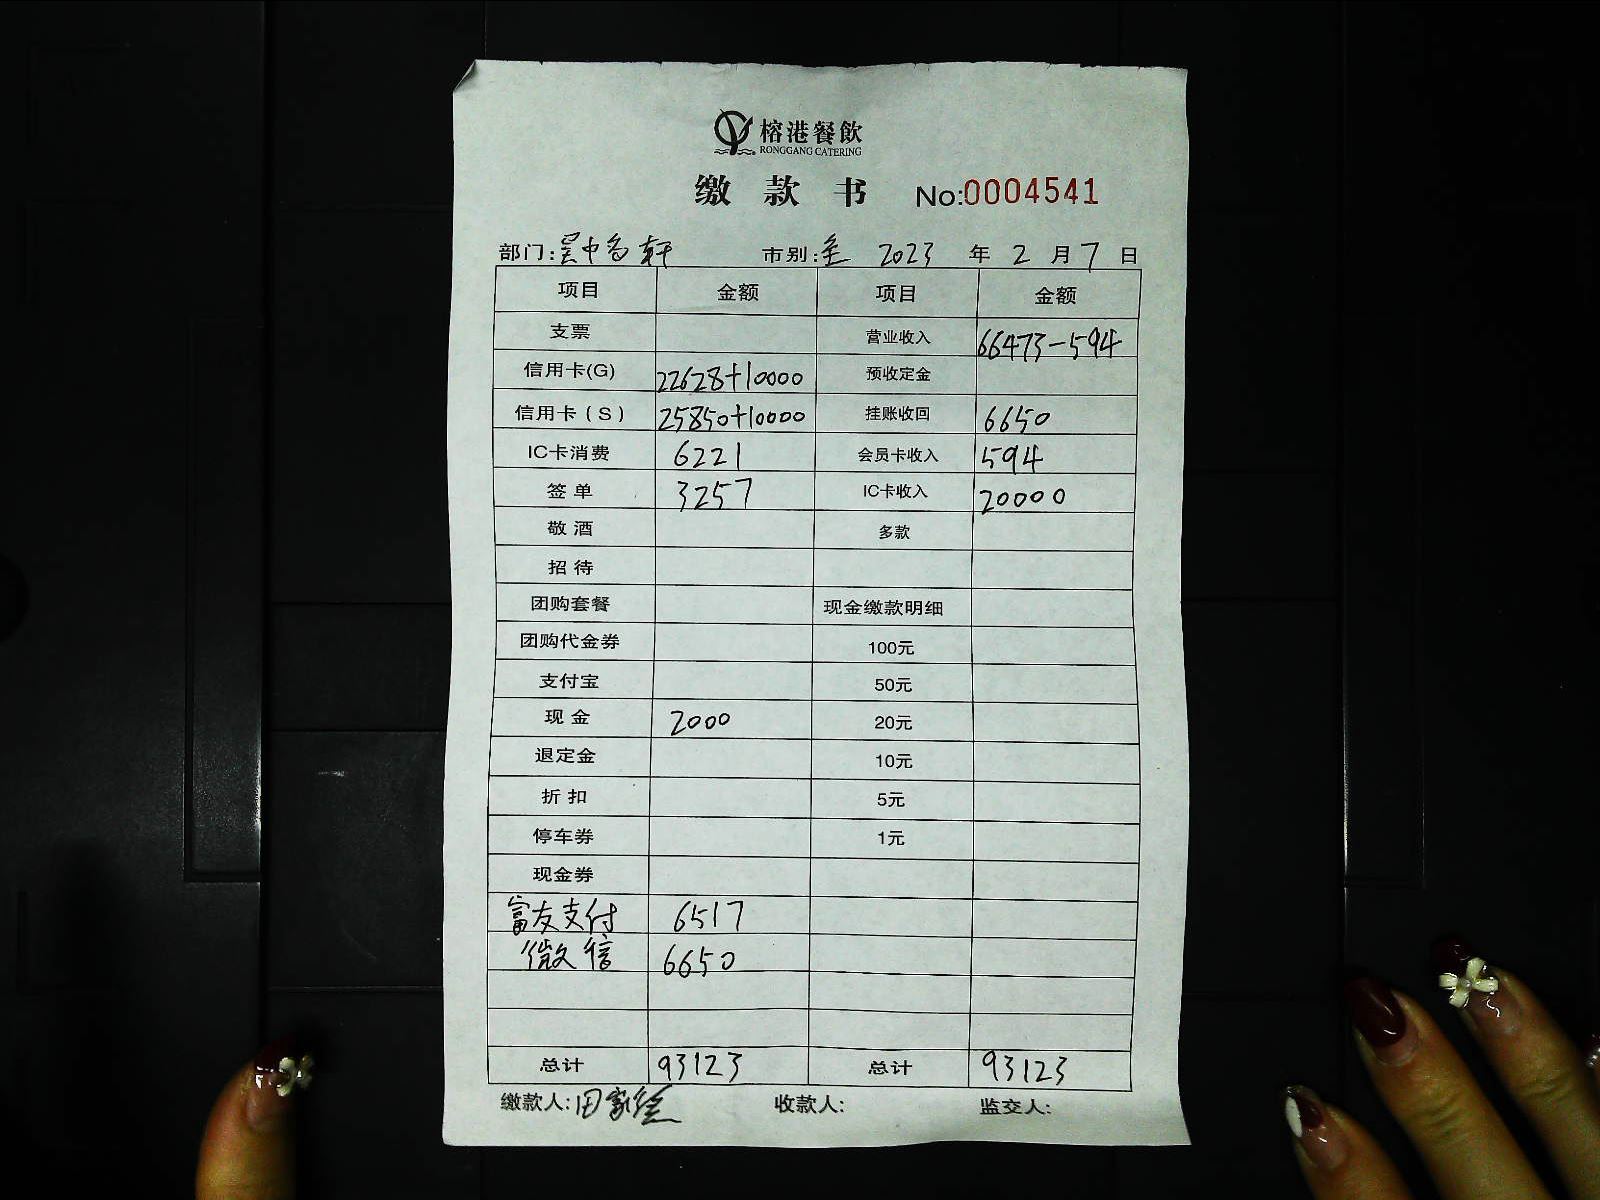 榕港餐飲
RONGGANG CATERING
缴款书 No:0004541
部门: 市别:全 2023 年 2 月 7 日
项目 金额 项目 金额
支票 营业收入 66473-594
信用卡(G) 22628+10000 预收定金
信用卡(S) 25850+10000 挂账收回 6650
IC卡消费 6221 会员卡收入 594
签单 3257 IC卡收入 20000
敬酒 多款
招待
团购套餐 现金缴款明细
团购代金券 100元
支付宝 50元
现金 2000 20元
退定金 10元
折扣 5元
停车券 1元
现金券
富友支付 6517
微信 6650
总计 93123 总计 93123
缴款人:田 收款人: 监交人: